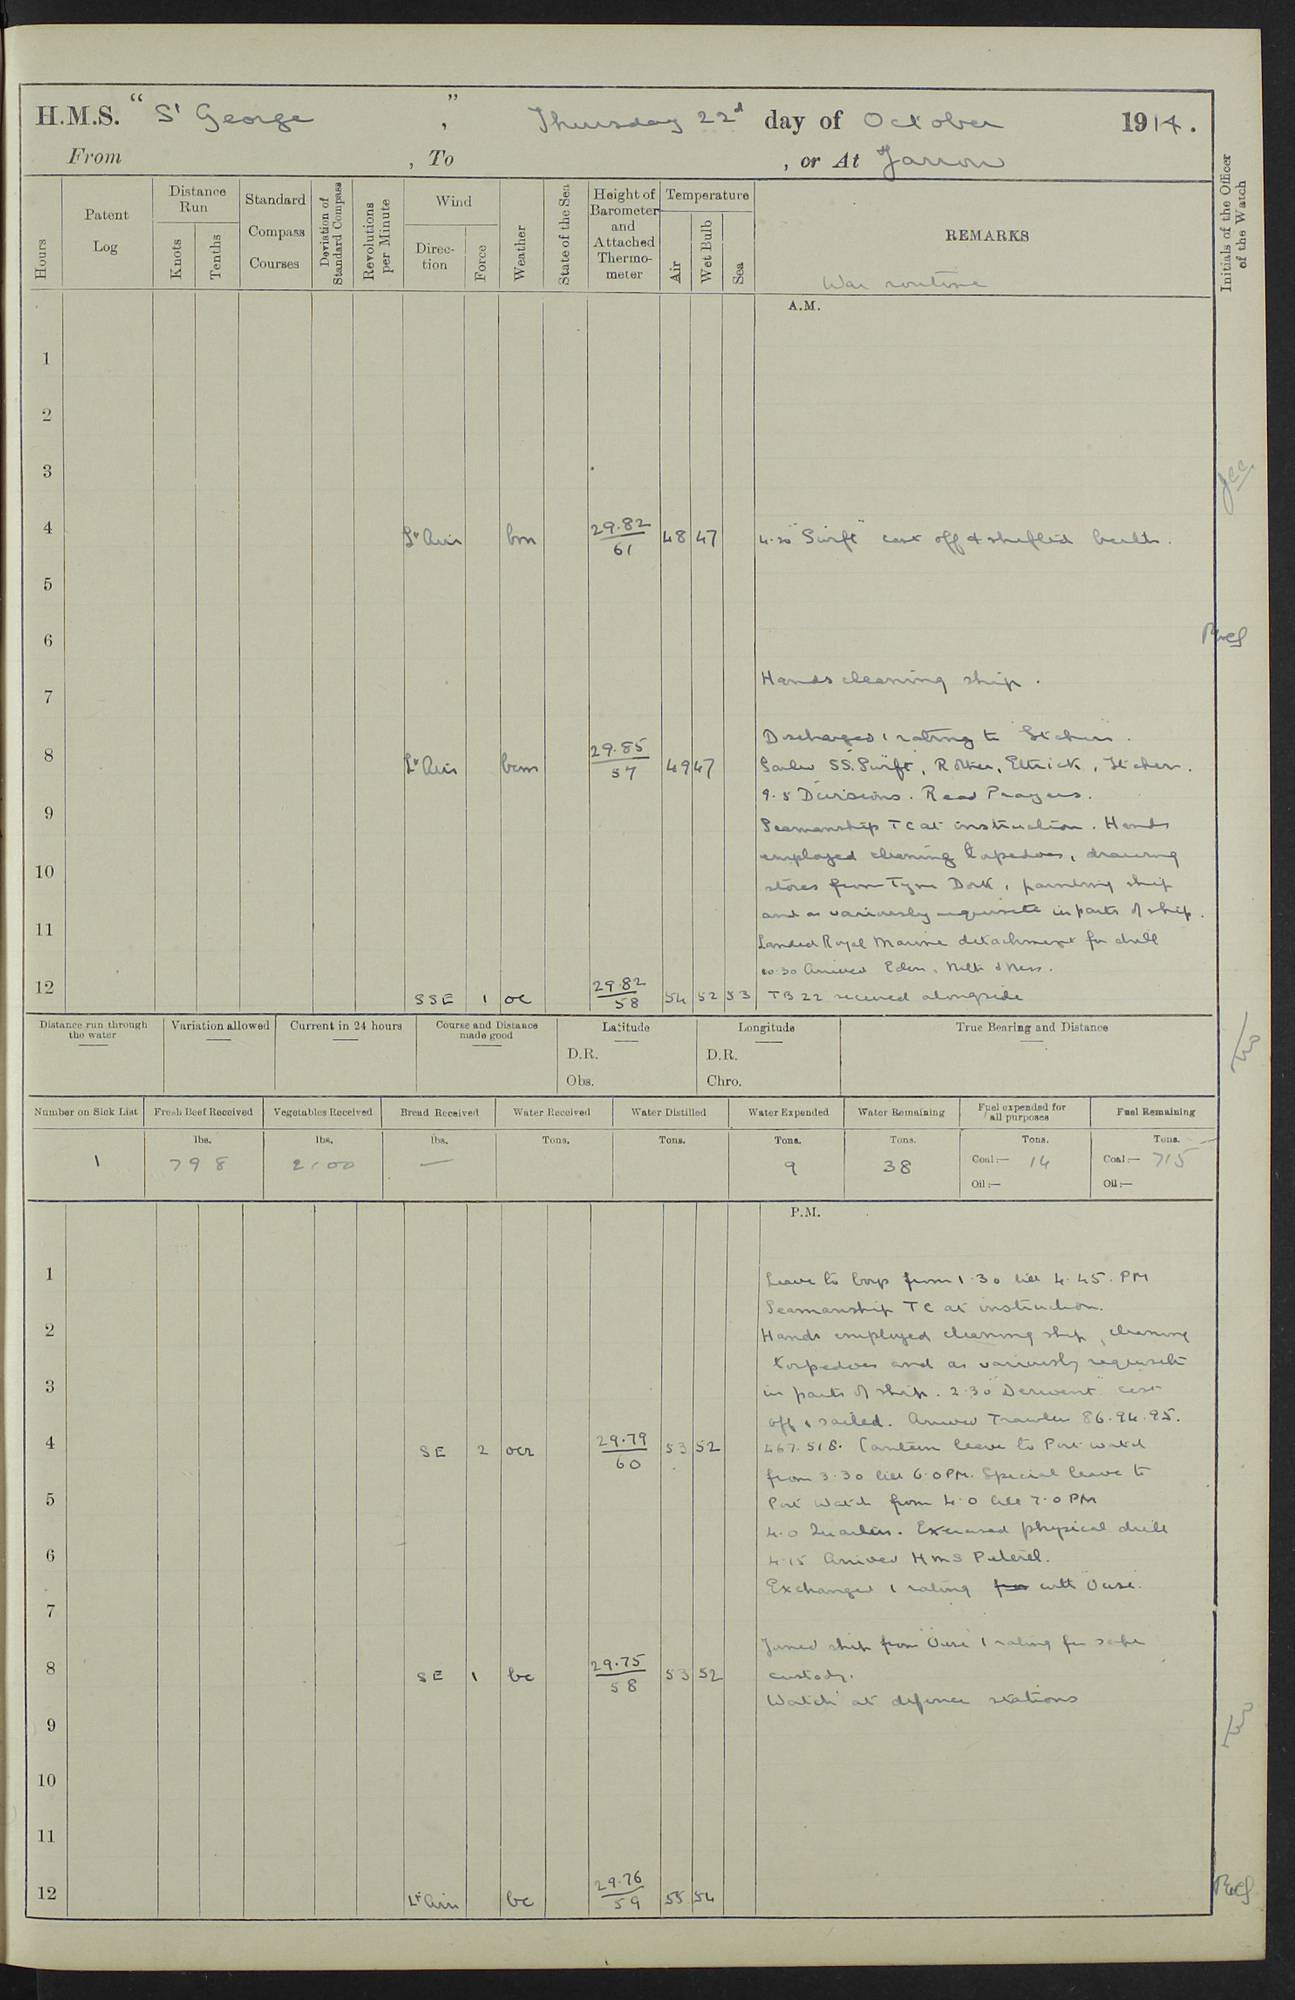 H.M.S. "St George", Thursday 22d day of October 1914.
From , To , or At Jarrow
Hours
Patent Log
Distance Run
Knots
Tenths
Standard Compass Courses
Deviation of Standard Compass
Revolutions per Minute
Wind
Direction
Force
Weather
State of the Sea
Height of Barometer and Attached Thermometer
Temperature
Air
Wet Bulb
Sea
REMARKS
Initials of the Officer of the Watch
War routine
A.M.
1
2
3
4 Lt Airs bm 29.82 61 48 47 4.20 "Swift" cast off & shifted berth.
5
6
Hands cleaning ship.
7
Discharged 1 rating to "Itchen".
8 Lt Airs bcm 29.85 57 49 47 Sailed SS. Swift, Rother, Ettrick, Itchen.
9.5 Divisions. Read Prayers.
9 Seamanship TC at instruction. Hands
employed cleaning torpedoes, drawing
10 stores from Tyne Dock, painting ship
and as variously requisite in parts of ship.
11 Landed Royal Marine detachment for drill
10.30 Arrived Eden, Nith & Ness.
12 SSE 1 oc 29.82 58 54 52 53 TB 22 secured alongside
Distance run through the water
Variation allowed
Current in 24 hours
Course and Distance made good
Latitude
D.R.
Obs.
Longitude
D.R.
Chro.
True Bearing and Distance
Number on Sick List
Fresh Beef Received
Vegetables Received
Bread Received
Water Received
Water Distilled
Water Expended
Water Remaining
Fuel expended for all purposes
Fuel Remaining
lbs. lbs. lbs. Tons. Tons. Tons. Tons. Tons. Tons.
1 798 2100 — 9 38 Coal:— 14 Coal:— 715
Oil:— Oil:—
P.M.
1 Leave to boys from 1.30 till 4.45. PM
Seamanship TC at instruction.
2 Hands employed cleaning ship, cleaning
torpedoes and as variously requisite
3 in parts of ship. 2.30 "Derwent" cast
off & sailed. Arrived Trawler 86.94.95.
4 SE 2 ocr 29.79 60 53 52 467.518. Canteen leave to Port watch
from 3.30 till 6.0 PM. Special leave to
5 Port Watch from 4.0 till 7.0 PM
4.0 Quarters. Exercised physical drill
6 4.15 Arrived HMS Peterel.
Exchanged 1 rating with "Ouse".
7
Joined ship from "Ouse" 1 rating for safe
8 SE 1 bc 29.75 58 53 52 custody.
Watch at defence stations
9
10
11
12 Lt Airs bc 29.76 59 55 54